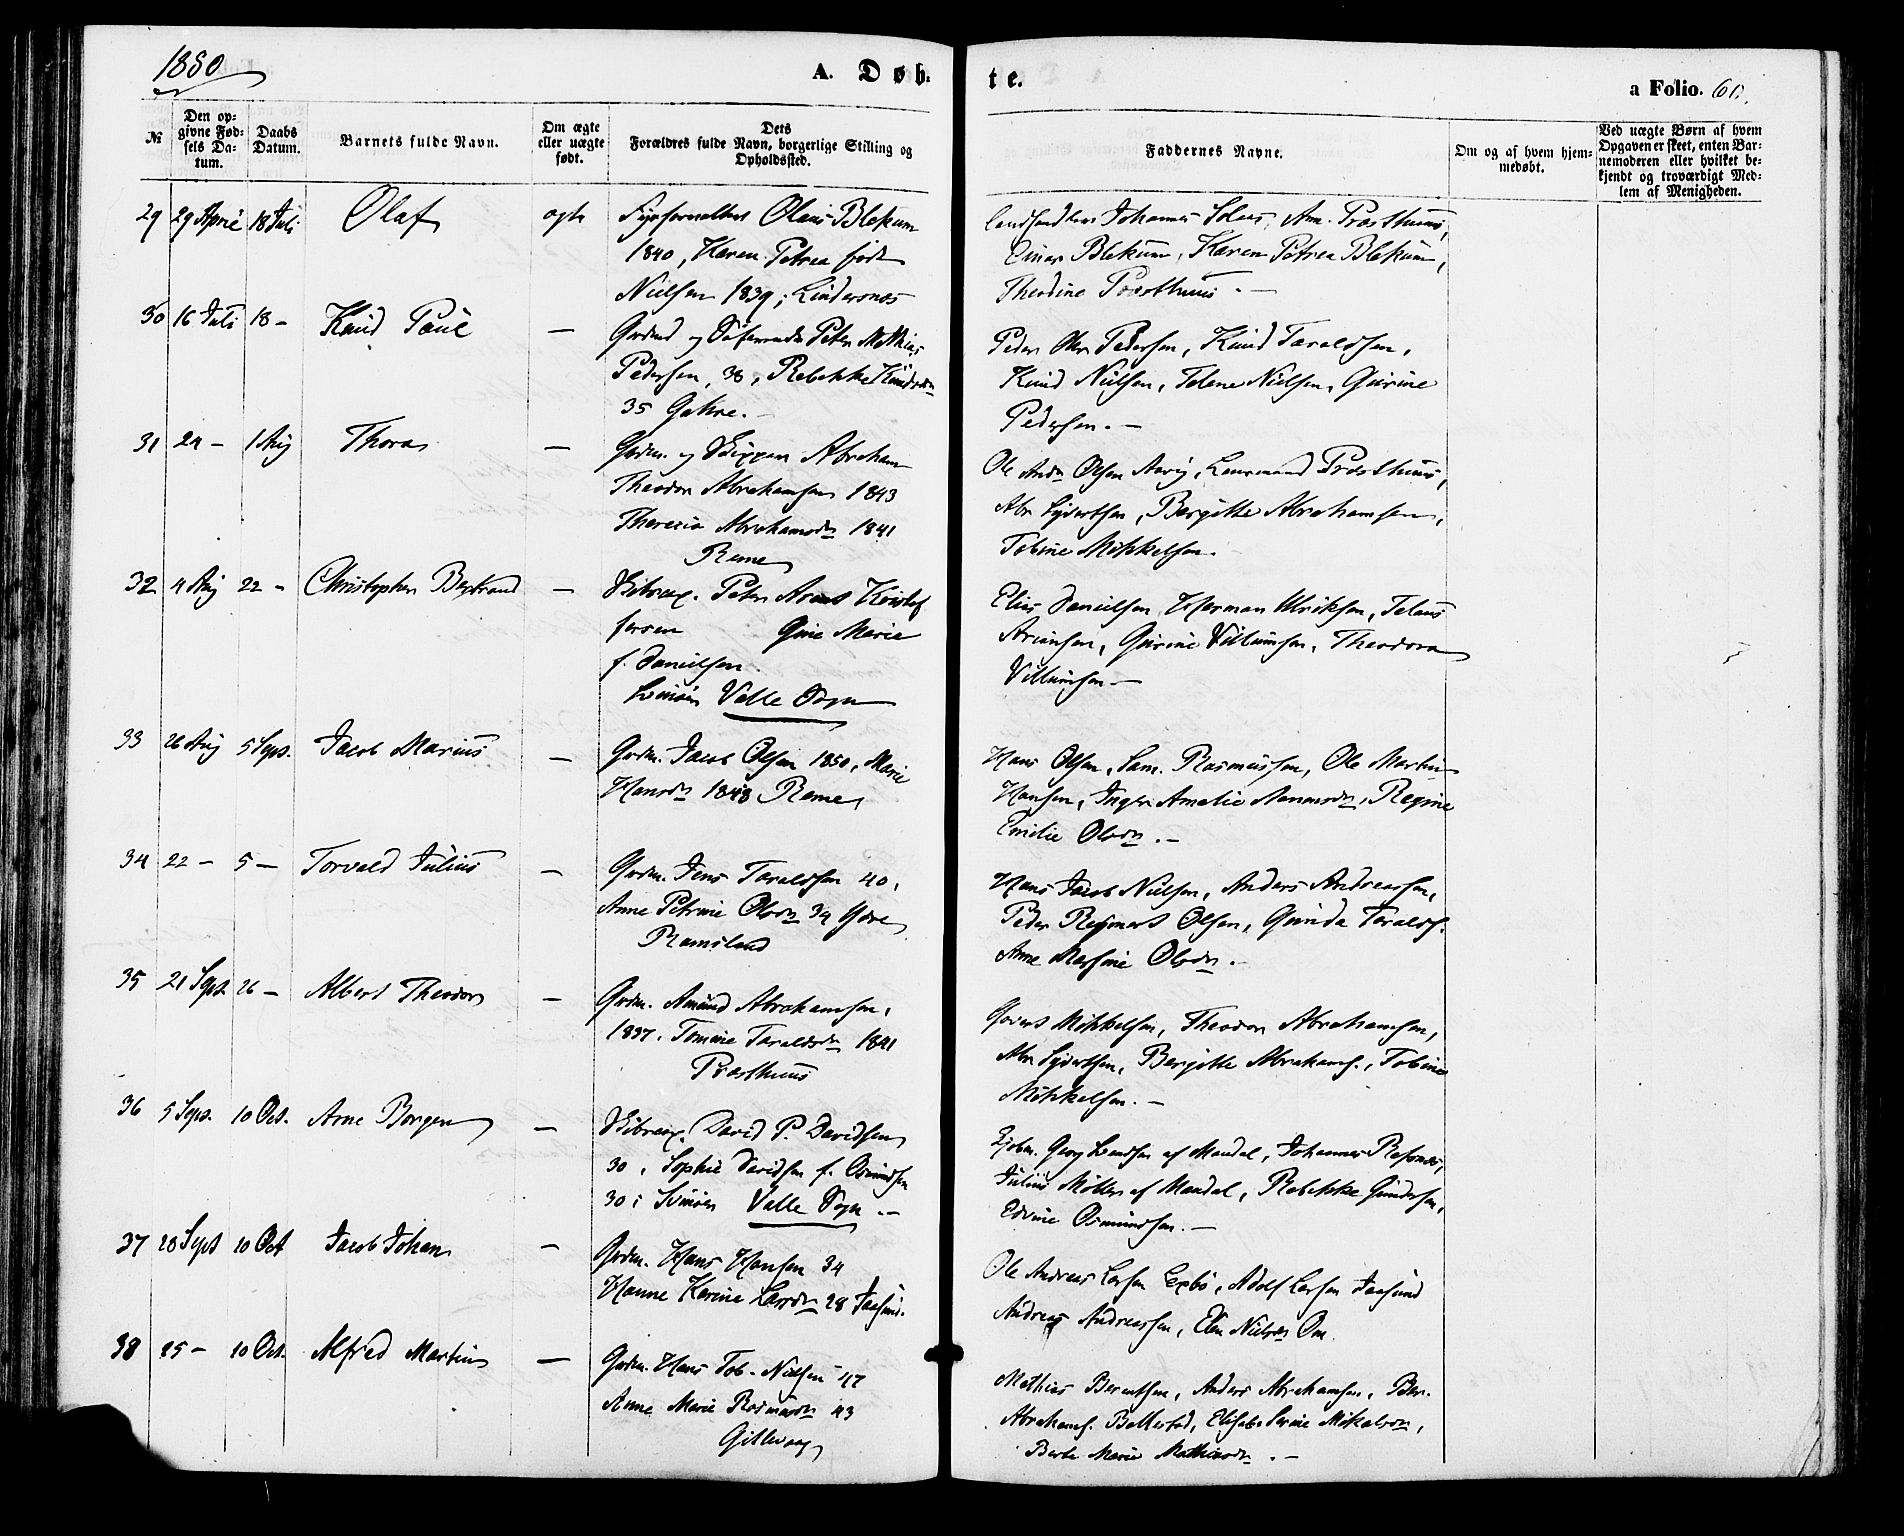 1880
A. Døb-
te.
a Folio. 60.
№
Den op-
givne Fød-
sels Da-
tum.
Daabs
Datum.
Barnets fulde Navn.
Om ægte
eller uægte
født.
Dets
Forældres fulde Navn, borgerlige Stilling og
Opholdssted.
Faddernes Navne.
Om og af hvem hjem-
medøbt.
Ved uægte Børn af hvem
Opgaven er skeet, enten Bar-
nemoderen eller hvilket be-
kjendt og troværdigt Med-
lem af Menigheden.
29 29 April 18 Juli Olaf ægte Fyrforvalter Olaus Blekum
1840, Karen Petrea født
Nielsen 1839; Lindesnæs
Landhandler Johannes Am. Præsthuus,
Einar Blekum, Karen Petrea Blekum,
Theodine Præsthuus. —
30 16 Juli 18 — Knud Paul — Gaardmd og Peter Mathias
Pedersen, 38, Rebekke Knudsdn
35 Gahre. —
Peder Chr Pedersen, Knud Taraldsen,
Knud Nielsen, Telene Nielsen, Gurine
Pedersen. —
31 24 — 1 Aug Thora — Grdm. og Skipper Abraham
Theodor Abrahamsen 1843
Theresia Abrahamsdn 1841
Rame
Ole Andr Olsen Aavig, Præsthuus,
Abr Sjvertsen, Bergitte Abrahamsen,
Tobine Mikkelsen.
32 4 Aug 22 — Christopher Bertrand — Skibrexp. Peter Arent Kristof
fersen Gine Marie
f. Danielsen.
Svinøer Valle Sogn
Elias Danielsen, Herman Ulriksen, Telaus
Gurine Villumsen, Theodora
Villumsen —
33 26 Aug 5 Sept. Jacob Marius — Grdm. Jacob Olsen 1850, Marie
Hansdn 1848 Rame
Hans Olsen, Sam. Rasmussen, Ole Martin
Hansen, Inger Amalie Regine
Emilie Olsdn. —
34 22 — 5 — Torvald Julius — Grdm. Jens Taraldsen 40,
Anne Petrine Olsdn 34 Ydre
Ramsland
Hans Jacob Nielsen, Anders Andreassen,
Peder Reymert Olsen, Gunda Taralds.
Anne Olsdn. —
35 21 Sept. 26 — Albert Theodor — Grdm. Amund Abrahamsen,
1837. Tomine Taraldsdn 1841
Præsthuus
Govert Mikkelsen, Theodor Abrahamsen,
Abr Sjvertsen, Bergitte Abrahams., Tobine
Mikkelsen. —
36 5 Sept. 10 Oct. Arne Borgen — Skibrexp. David P. Davidsen
30, Sophie Davidsen f. Osmundsen
30; Svinøer Valle Sogn. —
Kjøbm. Georg af Mandal, Johannes
Julius Møller af Mandal, Rebekke Gundersen,
Edvine Osmundsen. —
37 28 Sept 10 Oct Jacob Johan — Grdm. Hans Hansen 34
Hanne Karine Larsdn 28 Jaasund.
Ole Andreas Larsen Adolf Larsen Jaasund
Andreas Andreassen, Elen Nielsdn Om.
38 25 — 10 Oct. Alfred Martin — Grdm. Hans Tob. Nielsen 47
Anne Marie Rasmusdn 43
Gitlevaag
Mathias Berentsen, Anders Abrahamsen, Ber.
Abrahams. Ballestad, Elisabe Serine Mikalsdn,
Berte Marie Mathiasdn. —